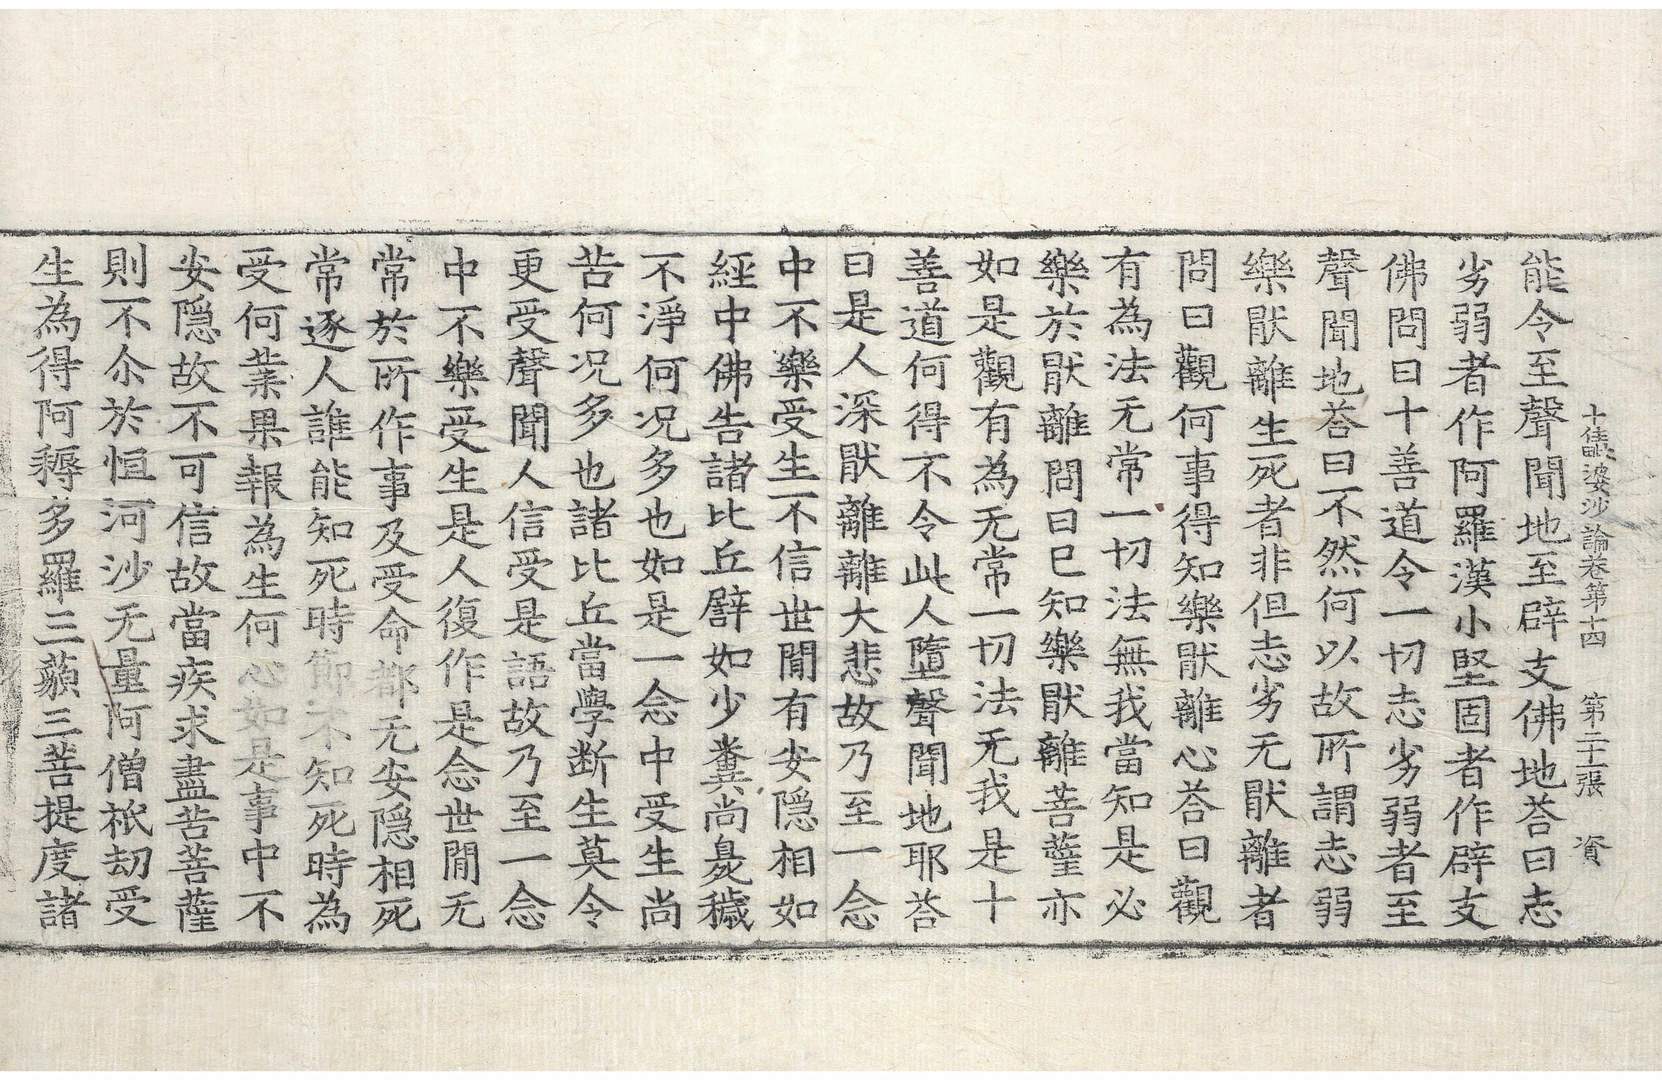 十住毗婆沙論卷第十四 第二十一張 資
能令至聲聞地至辟支佛地荅曰志
劣弱者作阿羅漢小堅固者作辟支
佛問曰十善道令一切志劣弱者至
聲聞地荅曰不然何以故所謂志弱
樂猒離生死者非但志劣无猒離者
問曰觀何事得知樂猒離心荅曰觀
有為法无常一切法無我當知是必
樂於猒離問曰已知樂猒離菩薩亦
如是觀有為无常一切法无我是十
善道何得不令此人墮聲聞地耶荅
曰是人深猒離離大悲故乃至一念
中不樂受生不信世閒有安隱相如
經中佛告諸比丘譬如少糞尚臭穢
不淨何况多也如是一念中受生尚
苦何况多也諸比丘當學斷生莫令
更受聲聞人信受是語故乃至一念
中不樂受生是人復作是念世閒无
常於所作事及受命都无安隱相死
常逐人誰能知死時節不知死時為
受何業果報為生何心如是事中不
安隱故不可信故當疾求盡苦菩薩
則不尒於恒河沙无量阿僧祇劫受
生為得阿耨多羅三藐三菩提度諸